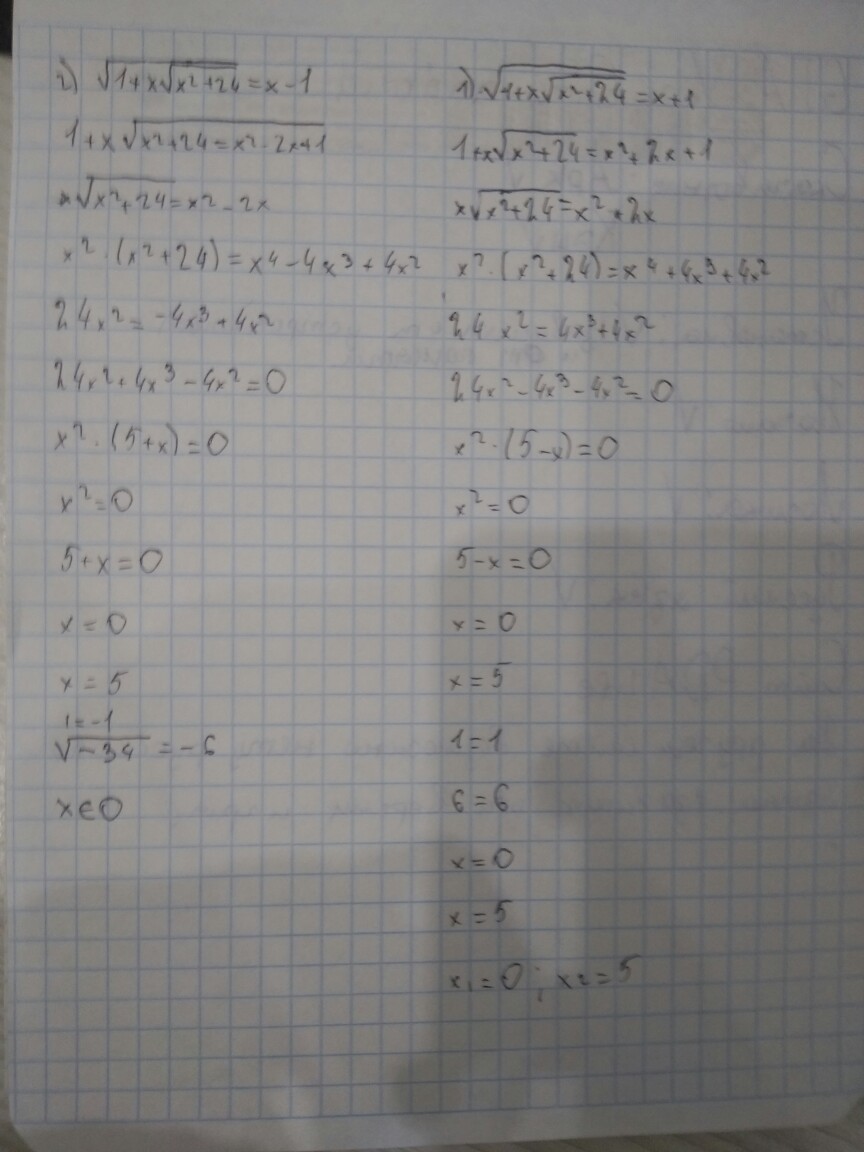 2) √(1+x√(x²+24)) = x-1
1+x√(x²+24=x²-2x+1)
x√(x²+24)=x²-2x
x²·(x²+24)=x⁴-4x³+4x²
24x²=-4x³+4x²
24x²+4x³-4x²=0
x²·(5+x)=0
x²=0
5+x=0
x=0
x=5
1=-1
√(-34) =-6
x∈0
1) √(1+x√(x²+24)) =x+1
1+x√(x²+24)=x²+2x+1
x√(x²+24)=x²+2x
x²·(x²+24)=x⁴+4x³+4x²
24x²=4x³+4x²
24x²-4x³-4x²=0
x²·(5-x)=0
x²=0
5-x=0
x=0
x=5
1=1
6=6
x=0
x=5
x₁=0; x2=5